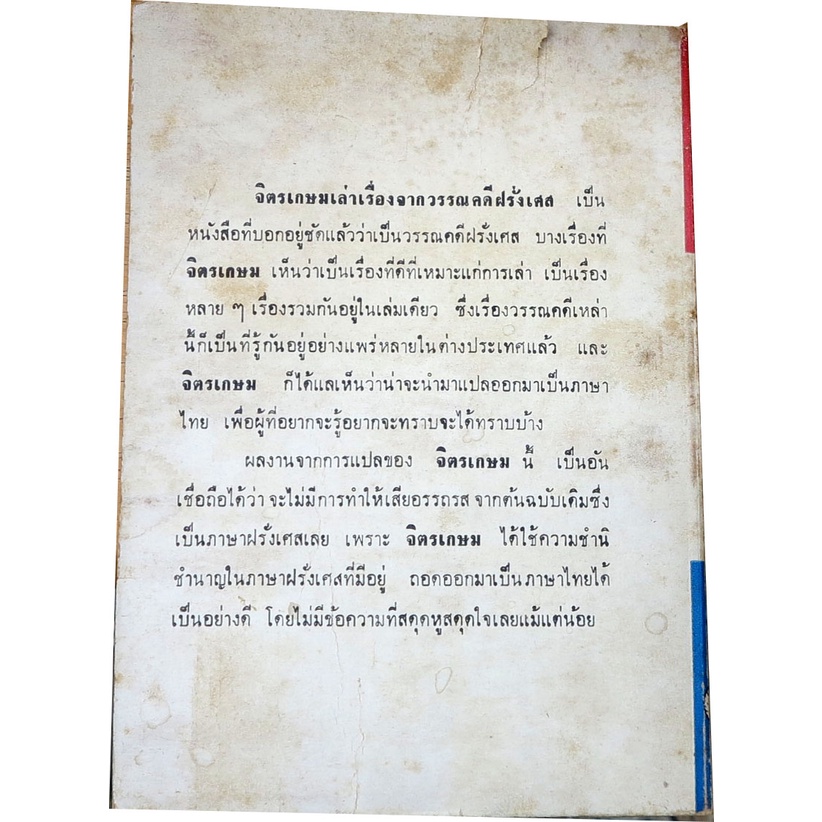 จิตรเกษมเล่าเรื่องจากวรรณคดีฝรั่งเศส เป็น
หนังสือที่บอกอยู่ชัดแล้วว่าเป็นวรรณคดีฝรั่งเศส บางเรื่องที่
จิตรเกษม เห็นว่าเป็นเรื่องที่ดีที่เหมาะแก่การเล่า เป็นเรื่อง
หลาย ๆ เรื่องรวมกันอยู่ในเล่มเดียว ซึ่งเรื่องวรรณคดีเหล่า
นี้ก็เป็นที่รู้กันอยู่อย่างแพร่หลายในต่างประเทศแล้ว และ
จิตรเกษม ก็ได้แลเห็นว่าน่าจะนำมาแปลออกมาเป็นภาษา
ไทย เพื่อผู้ที่อยากจะรู้อยากจะทราบจะได้ทราบบ้าง
ผลงานจากการแปลของ จิตรเกษม นี้ เป็นอัน
เชื่อถือได้ว่า จะไม่มีการทำให้เสียอรรถรส จากต้นฉบับเดิมซึ่ง
เป็นภาษาฝรั่งเศสเลย เพราะ จิตรเกษม ได้ใช้ความชำนิ
ชำนาญในภาษาฝรั่งเศสที่มีอยู่ ถอดออกมาเป็นภาษาไทยได้
เป็นอย่างดี โดยไม่มีข้อความที่สดุดหูสดุดใจเลยแม้แต่น้อย